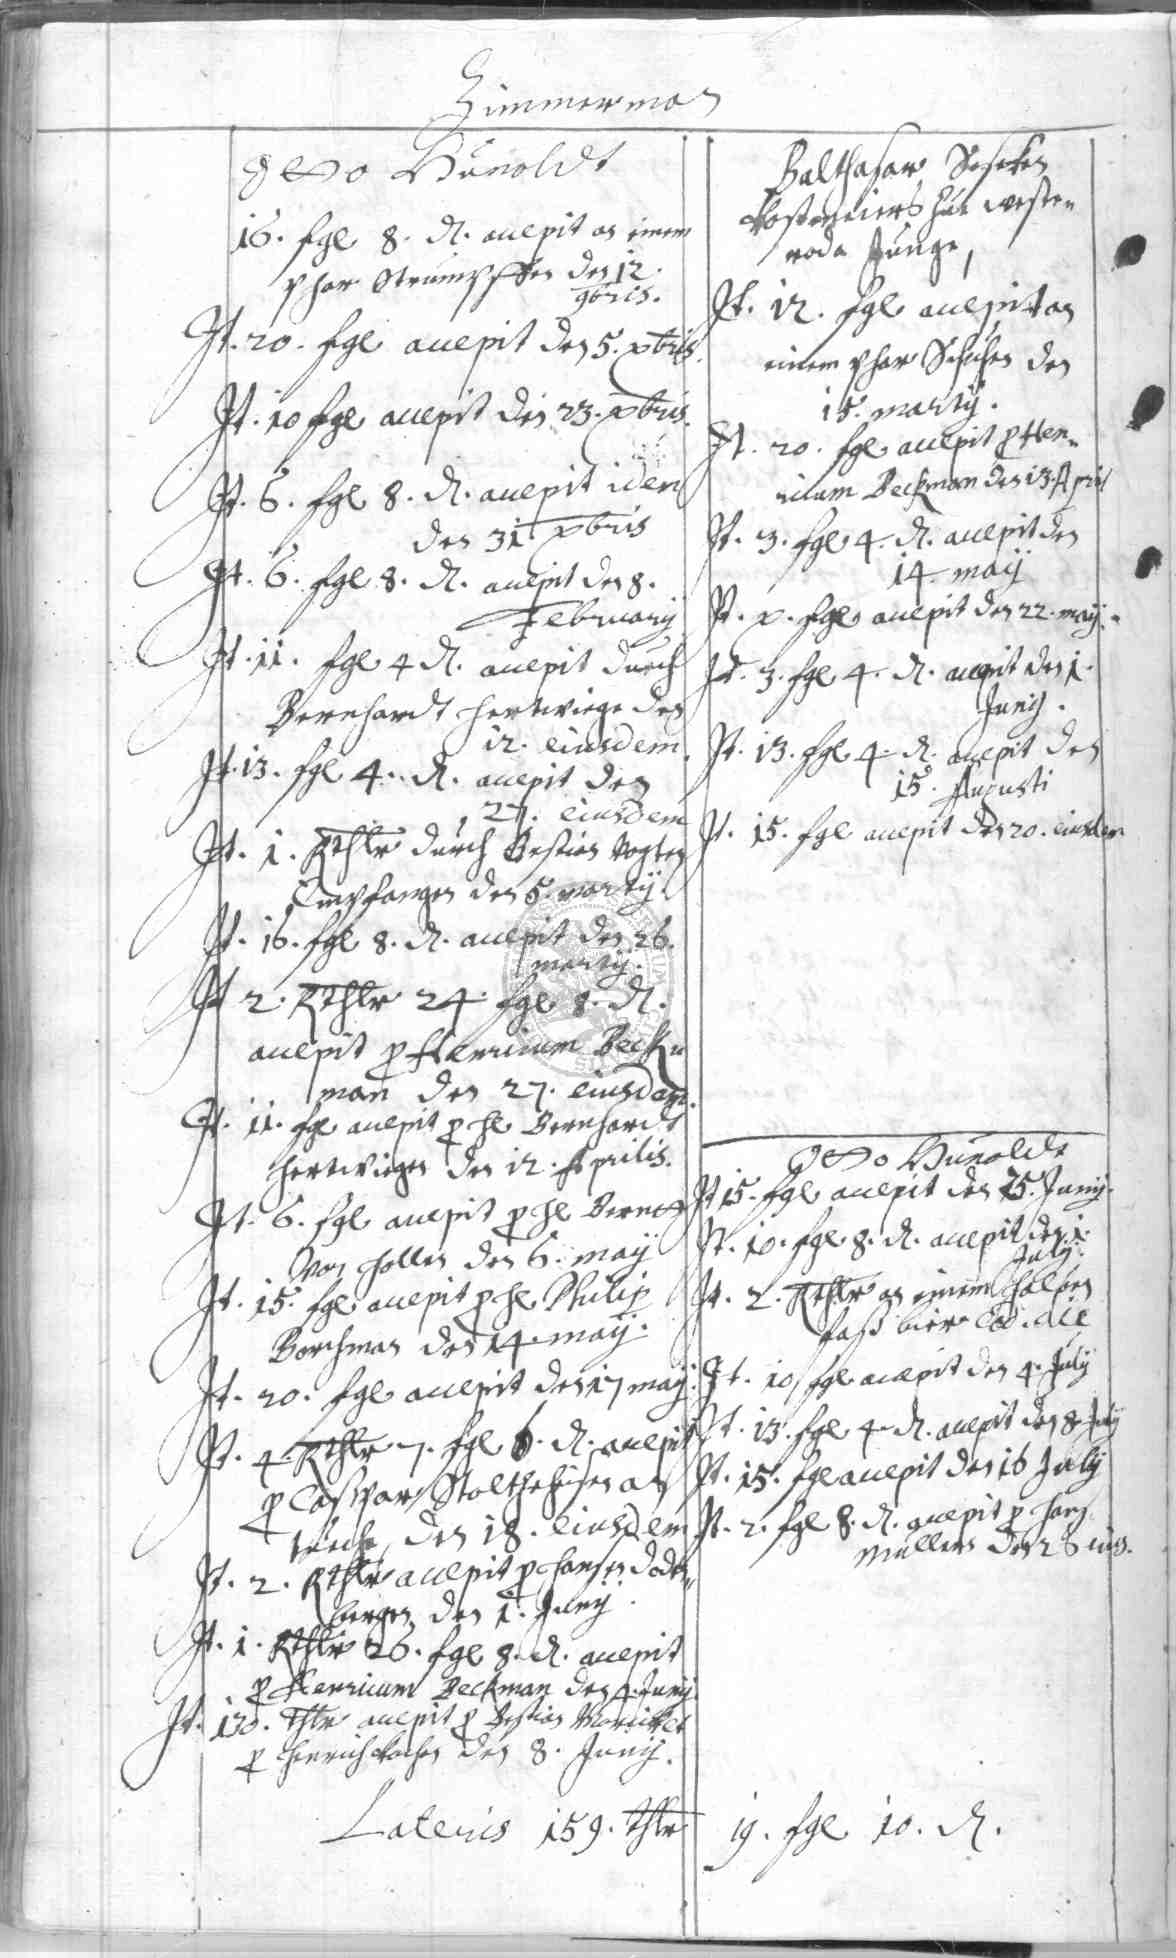 Zimmerman
Otto Hunoldt
16. sgl 8. d. accepit an einem
phar Strümpffen den 12.
9bris.
It. 20. sgl accepit den 5. xbris.
It. 10 sgl accepit den 23. xbris.
It. 6. sgl 8. d. accepit idem
den 31 xbris
It. 6. sgl 8. d. accepit den 8.
February
It. 11. sgl 4 d. accepit durch
Bernhardt Hertwiege den
12. eiusdem.
It. 13. sgl 4. d. accepit den
27. eiusdem
It. 1. Rthlr durch Bestian Vogten
Empfangen den 5. marty.
It. 16. sgl 8. d. accepit den 26.
marty.
It 2. Rthlr 24 sgl 8. d.
accepit p Henricum Beck=
man den 27. eiusdem.
It. 11. sgl accepit p H. Bernhardt
Hertwiegen den 12. Aprilis.
It. 6. sgl accepit p H. Bernt
von Hollen den 6. may
It. 15. sgl accepit p H. Philip
Borchman den 14. may.
It. 20. sgl accepit den 17 may.
It. 4. Rthlr 7. sgl 6. d. accepit
p Caspar Stolthehusen an
tuche, den 18. eiusdem
It. 2. Rthlr accepit p Hansen Doden=
bergen den 1. Juny.
It. 1. Rthlr 26. sgl 8. d. accepit
p Henricum Beckman den 4. Juny
It. 130. thlr accepit p Bestian
p Henrich den 8. Juny.
Balthasar
hus westen
roda Junge,
It. 12. sgl accepit an
einem phar Schuhen den
15. marty.
It. 20. sgl accepit p Hen=
ricum Beckman den 13. April
It. 3. sgl 4. d. accepit den
14. may
It. x. sgl accepit den 22. may.
It. 3. sgl 4. d. accepit den 1.
Juny.
It. 13. sgl 4 d. accepit den
15. Augusti
It. 15. sgl accepit den 20. eiusdem
Otto Hunoldt
It 15. sgl accepit den 25. Juny.
It. 10. sgl 8. d. accepit den 1.
July.
It. 2. Rthlr an einem halben
faß bier eod. die
It. 10 sgl accepit den 4. July
It. 13. sgl 4 d. accepit den 8 July
It. 15. sgl accepit den 16 July
It. 2. sgl 8. d. accepit p Hans
Mullern den 26 eius.
Lateris 159. thlr 19. sgl 10. d.